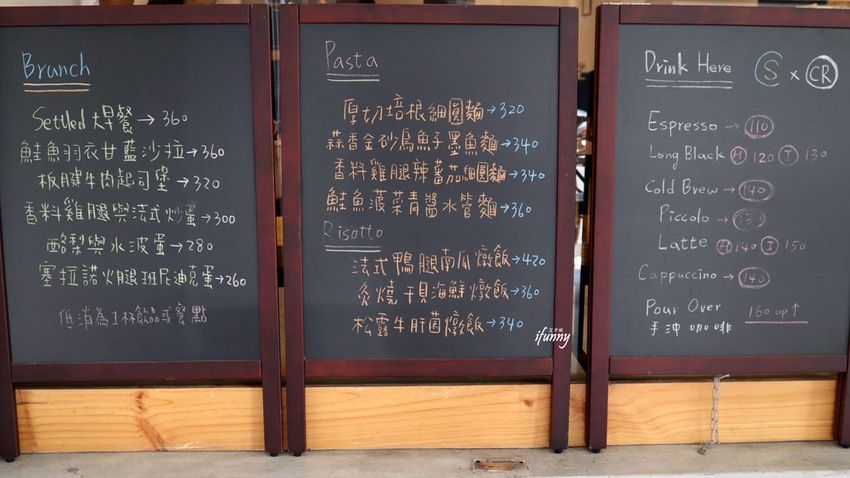 Brunch
Settled 大早餐 → 360
鮭魚羽衣甘藍沙拉 → 360
板腱牛肉起司堡 → 320
香料雞腿與法式炒蛋 → 300
酪梨與水波蛋 → 280
塞拉諾火腿班尼迪克蛋 → 260
低消為1杯飲品或餐點
Pasta
厚切培根細圓麵 → 320
蒜香金砂烏魚子墨魚麵 → 340
香料雞腿辣蕃茄細圓麵 → 340
鮭魚菠菜青醬水管麵 → 360
Risotto
法式鴨腿南瓜燉飯 → 420
炙燒干貝海鮮燉飯 → 360
松露牛肝菌燉飯 → 340
ifunny
Drink Here S x CR
Espresso → 110
Long Black H 120 I 130
Cold Brew → 140
Piccolo → 130
Latte H 140 I 150
Cappuccino → 140
Pour Over
手沖咖啡 160 up ↑